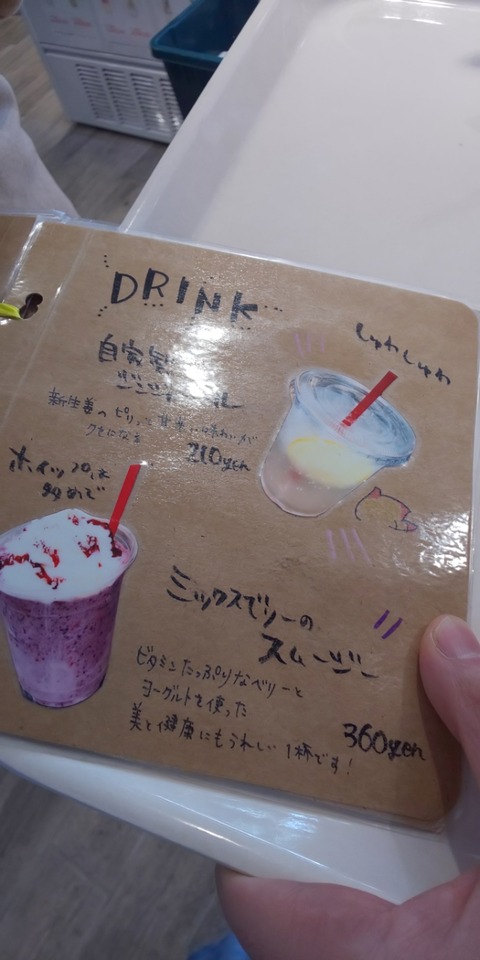 DRINK
しゅわしゅわ
自家製
新生姜の ピリッと 甘辛い味わいが
クセになる
210yen
ホイップは
多めで
ミックスベリーの
スムージー
ビタミンたっぷりなベリーと
ヨーグルトを使った
美と健康にもうれしい1杯です!
360yen